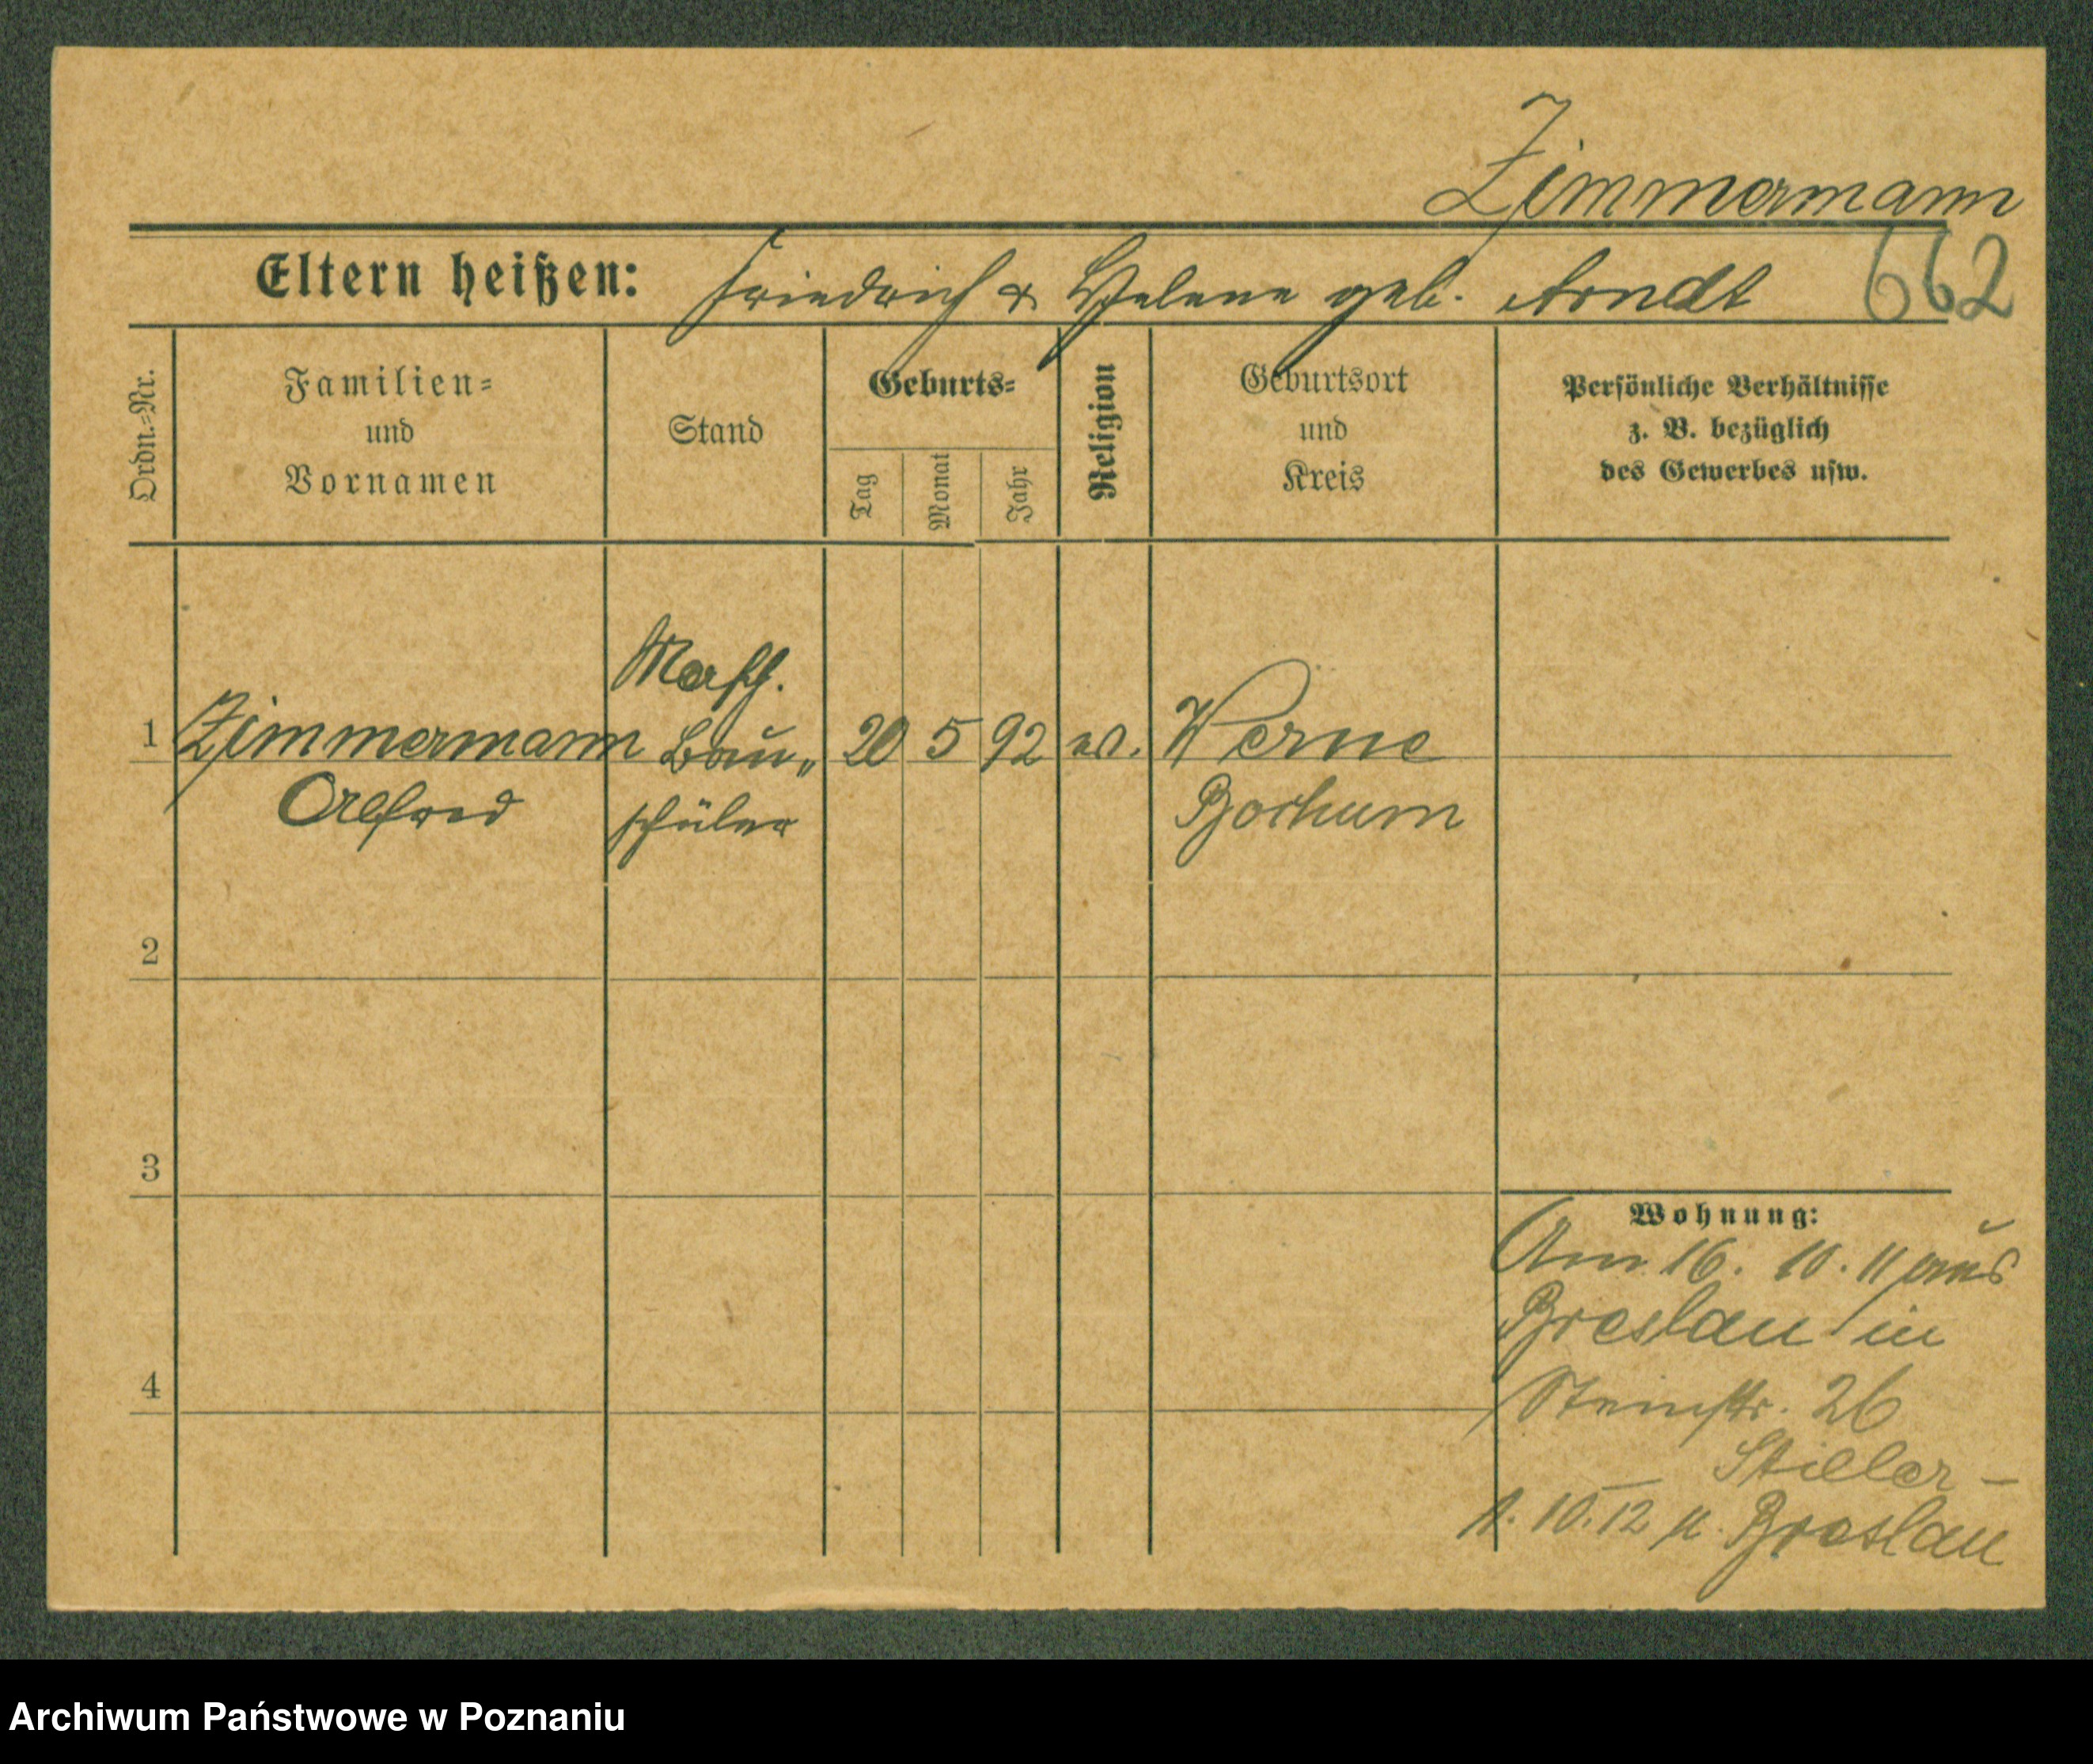 Zimmermann
Eltern heißen: Friedrich & Helene geb. Arndt 662
Ordn.=Nr.
Familien=
und
Vornamen
Stand
Geburts=
Tag
Monat
Jahr
Religion
Geburtsort
und
Kreis
Persönliche Verhältnisse
z. B. bezüglich
des Gewerbes usw.
Masch.
1 Zimmermann Bau„ 20 5 92 ev. Werne
Alfred schüler Bochum
2
3
Wohnung:
Am 16. 10. 11 aus
Breslau in
4
Steinstr. 26
Stieler –
1. 10. 12 n. Breslau
Archiwum Państwowe w Poznaniu